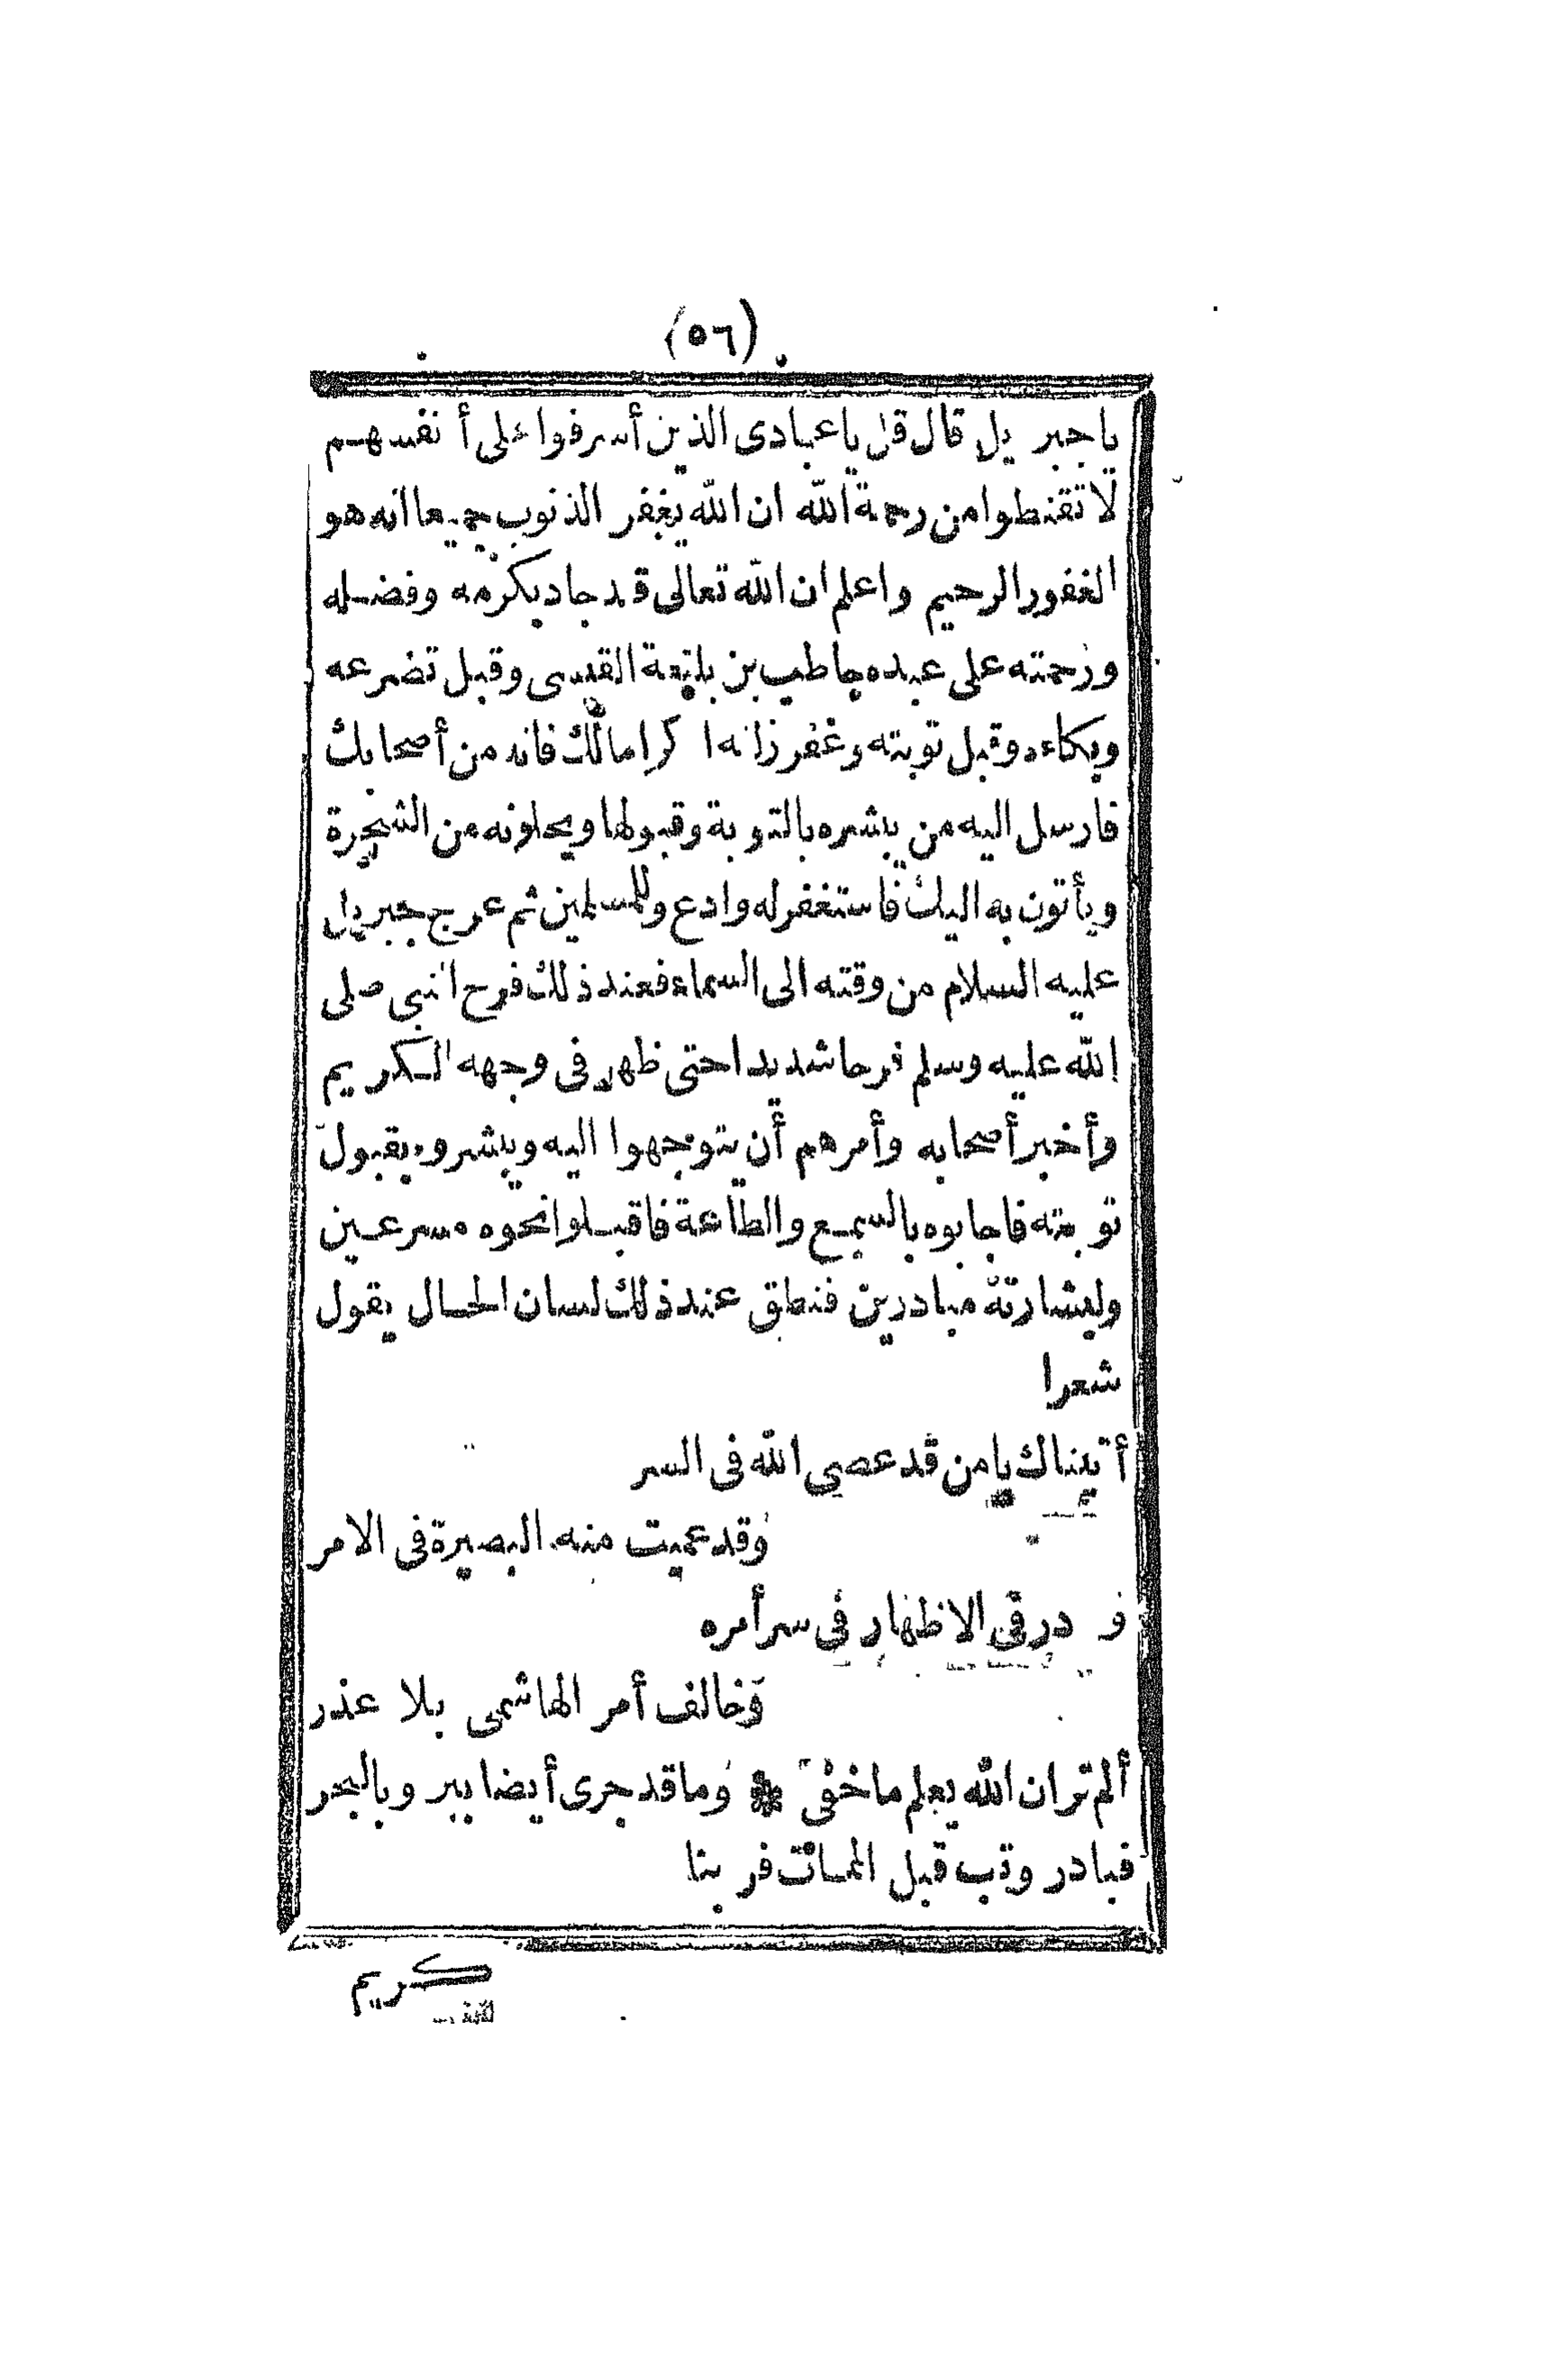 (٥٦)
ياجبريل قال قل ياعبادى الذين أسرفوا على أنفسهم
لا تقنطوا من رحمة الله ان الله يغفر الذنوب جميعا انه هو
الغفور الرحيم واعلم ان الله تعالى قد جاد بكرمه وفضله
ورحمته على عبده حاطب بن بلتعة القيسى وقبل تضرعه
وبكاءه وقبل توبته وغفر زلته اكراما لك فانه من أصحابك
فارسل اليه من يبشره بالتوبة وقبولها ويحلونه من الشجرة
ويأتون به اليك فاستغفر له وادع وللمسلمين ثم عرج جبريل
عليه السلام من وقته الى السماء فعند ذلك فرح النبى صلى
الله عليه وسلم فرحا شديدا حتى ظهر فى وجهه الكريم
وأخبر أصحابه وأمرهم أن يتوجهوا اليه ويبشروه بقبول
توبته فاجابوه بالسمع والطاعة فاقبلوا نحوه مسرعين
ولبشارته مبادرين فنطق عند ذلك لسان الحال يقول
شعرا
أتيناك يا من قد عصى الله فى السر
وقد عميت منه البصيرة فى الامر
فى الاظهار فى سر أمره
وخالف أمر الهاشمى بلا عذر
ألم تر ان الله يعلم ما خفى * وما قد جرى أيضا ببر وبالبحر
فبادر وتب قبل الممات فربنا
كريم